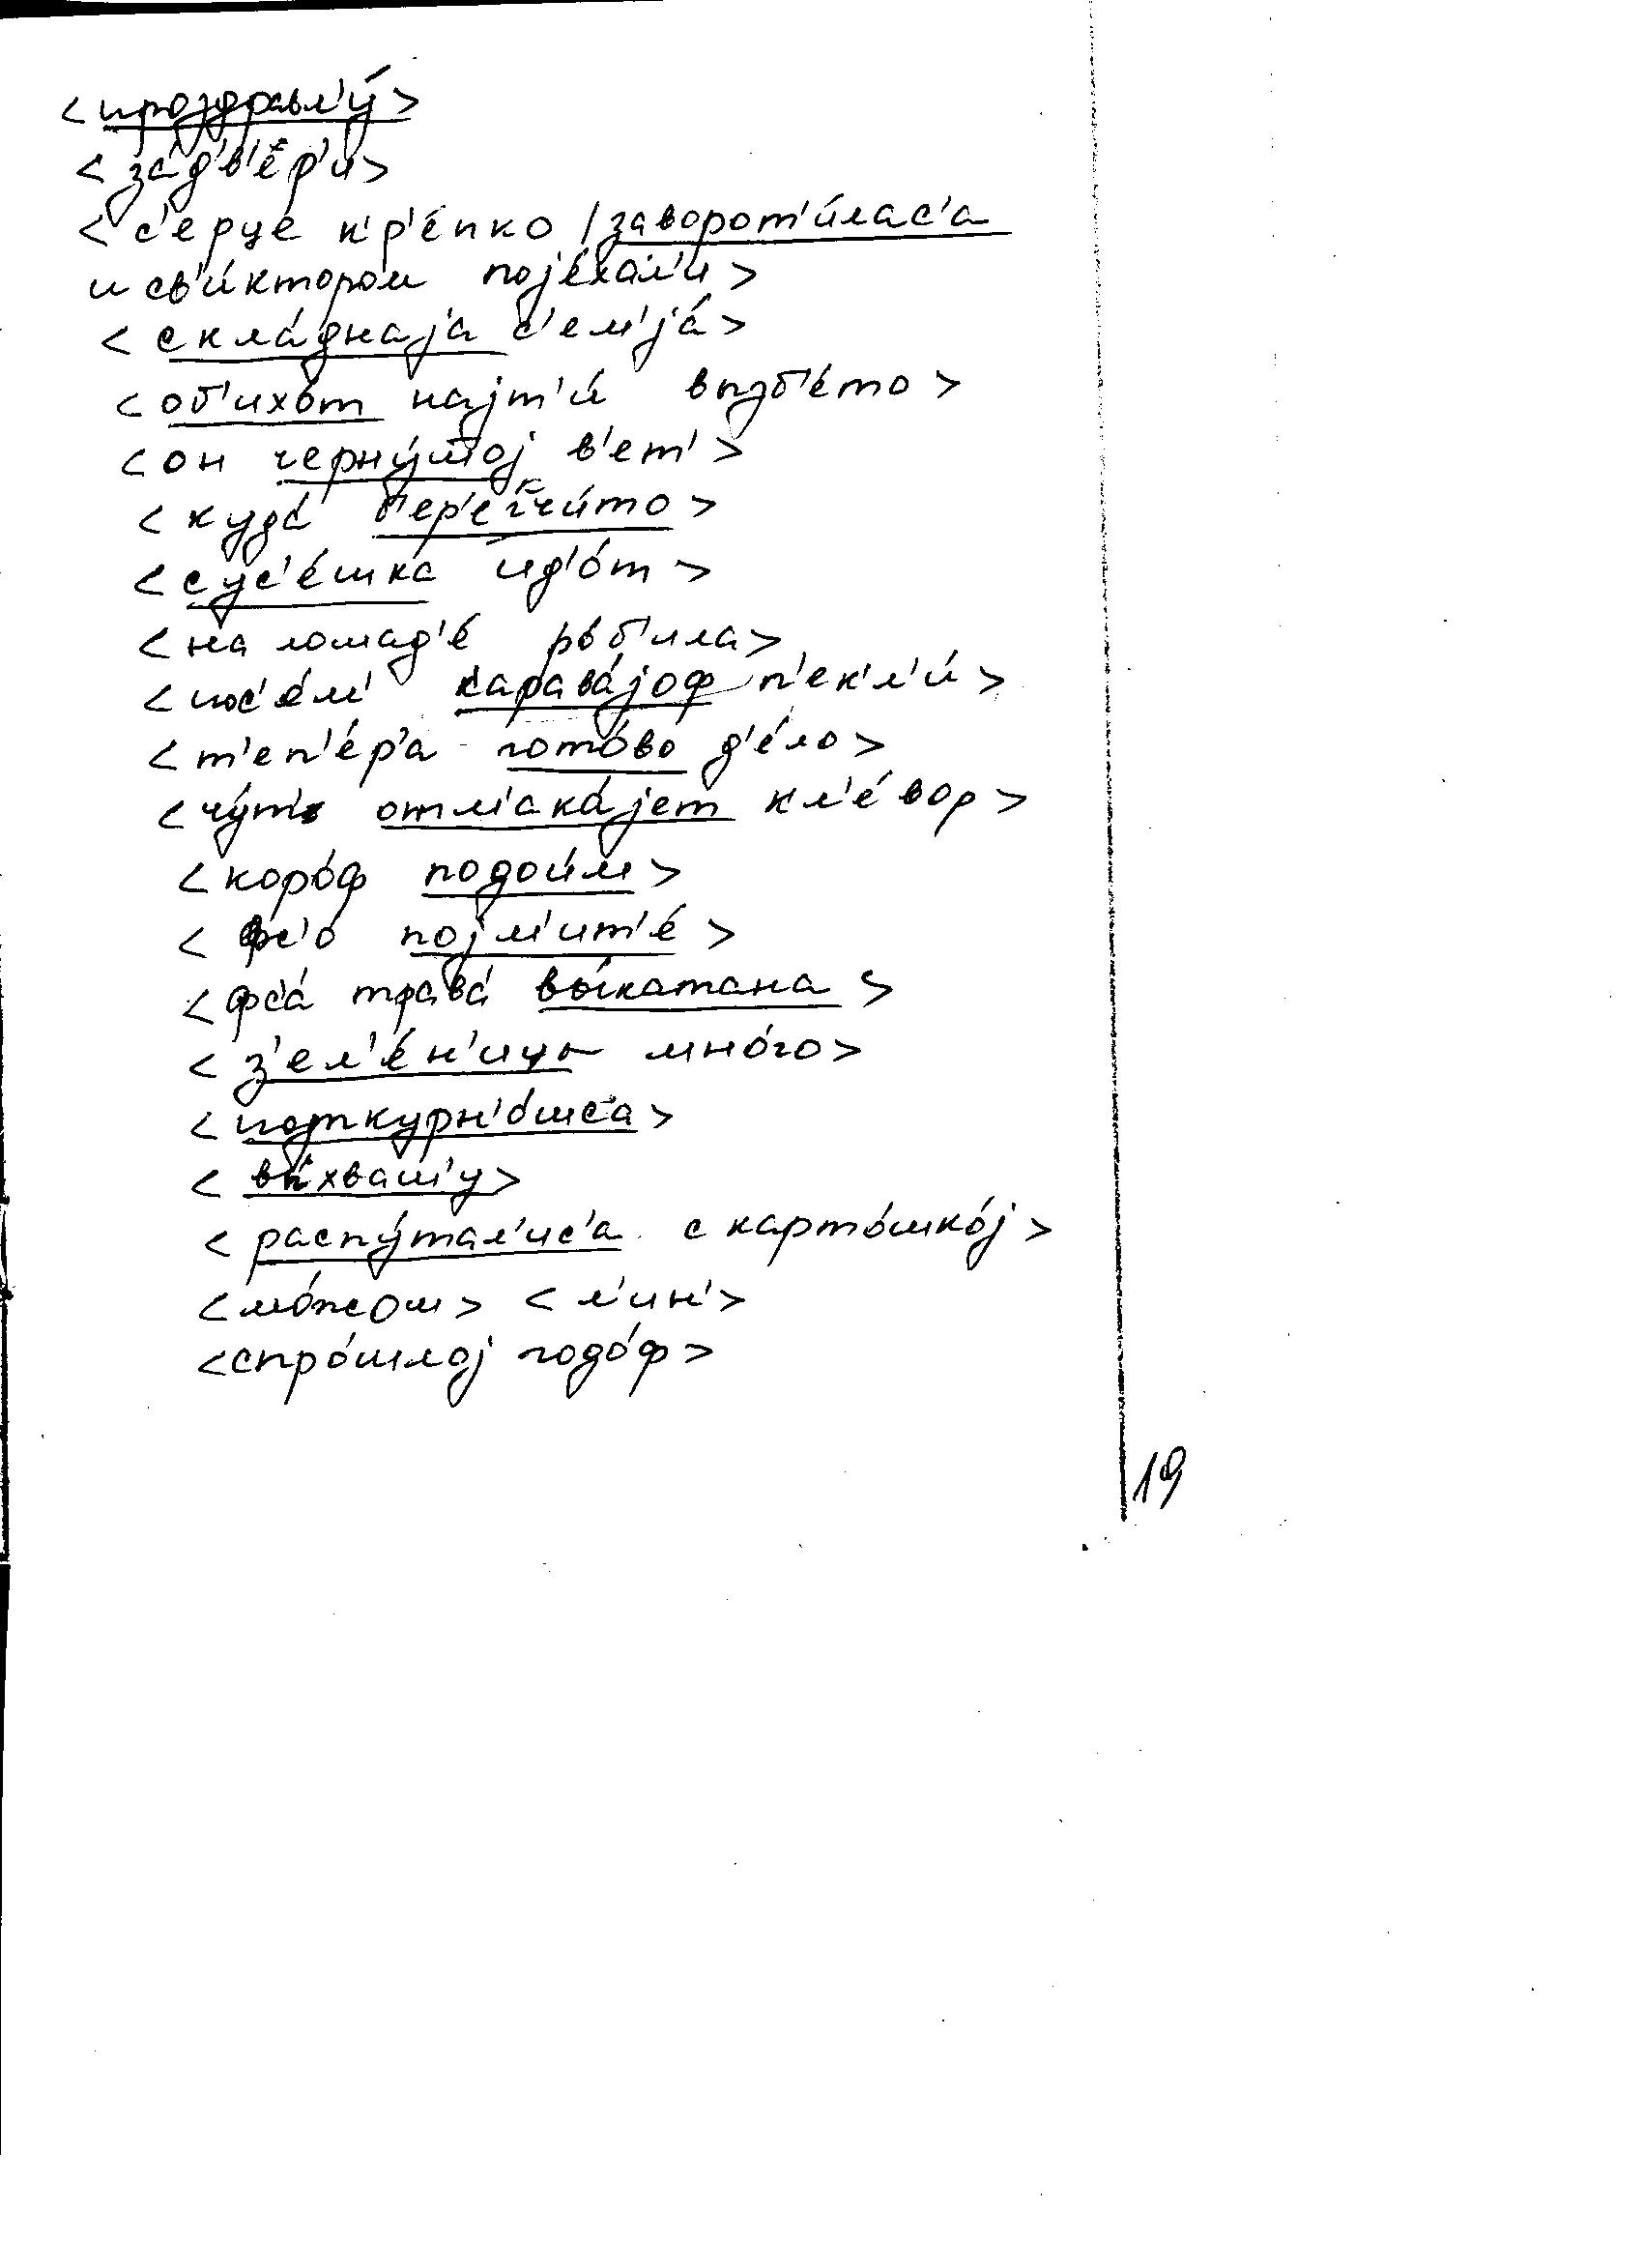 <проздравл'у́>
<за́д'в'ер'и>
<с'ерце́ кр'е́пко / заворот'и́лас'а
и св'и́ктором поjе́хал'и>
<скла́днаjа с'ем'jа́>
<об'ихо́т наjт'и́ в ызб'е́то>
<он черну́шоj в'ет'>
<куда́ б'ер'егчи́то>
<сус'е́шка ид'о́т>
<на лошад'е́ ро́б'ила>
<пос'е́м' карава́jоф п'екл'и́>
<т'еп'е́р'а гото́во д'е́ло>
<чу́т' отл'ака́jет кл'е́вор>
<коро́ф подои́м>
<фс'о́ поjм'ит'е́>
<фс'а́ трава́ вы́катана>
<з'ел'е́н'ицы мно́го>
<поткурн'о́шс'а>
<вы́хвал'у>
<распу́тал'ис'а с карто́шкоj>
<мо́жом> <л'ин'>
<спро́шлоj годо́ф>
19